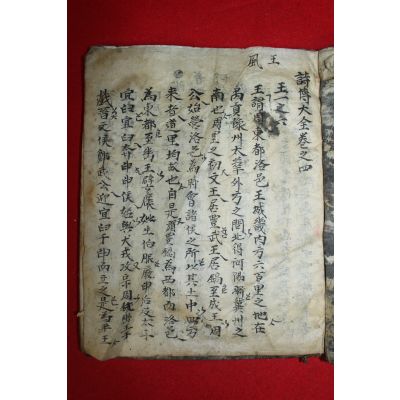 王風
詩傳大全卷之四
王一之六
王謂周東都洛邑王城畿內方六百里之地在
禹貢豫州太華外方之間北得河陽漸冀州之
南也周室之初文王居豐武王居鎬至成王周
公始營洛邑為時會諸侯之所以其土中四方
來者道里均故也自是謂豐鎬為西都而洛邑
為東都至幽王嬖褒姒生伯服廢申后及太子
宜臼宜臼奔申申侯怒與犬戎攻宗周弒幽王于
戲晉文侯鄭武公迎宜臼于申而立之是為平王